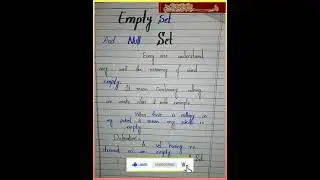 Empty Set
And Null Set
Every one understand
very well the meaning of word
empty.
It mean Containing nothing
we make clear it with example.
When there is nothing in
my pocket it mean my pocket is
empty.
Definition:
A set having no
element is empty
Set